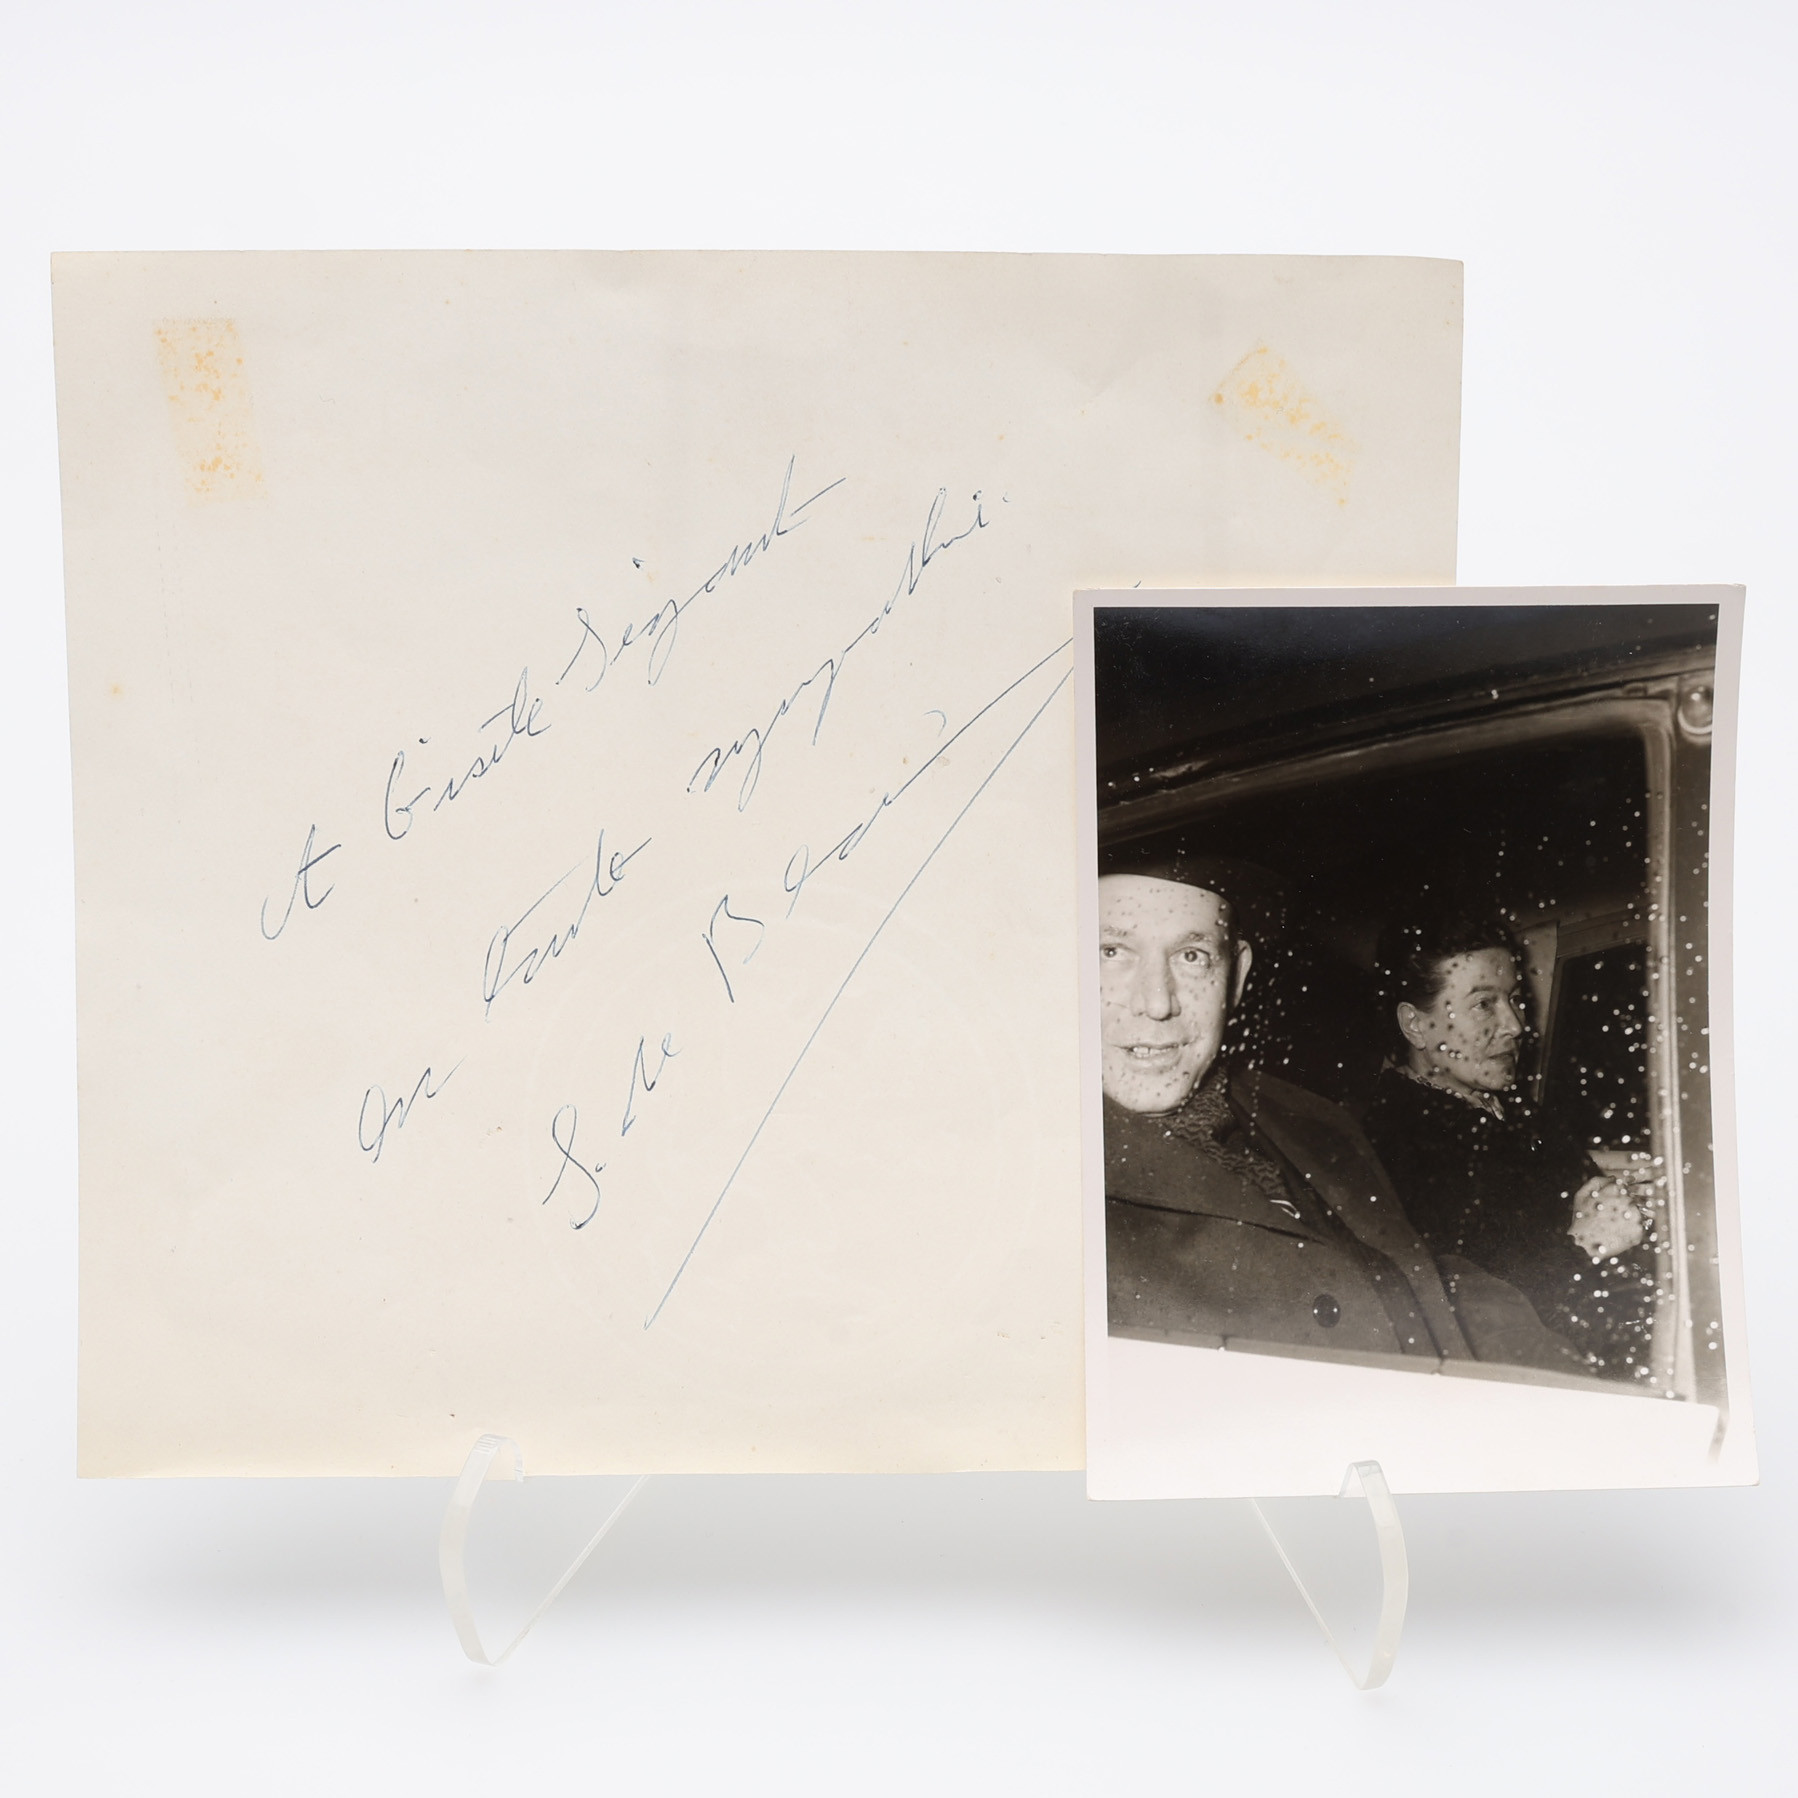 A Gisèle Ségant
en toute sympathie
S. de Beauv